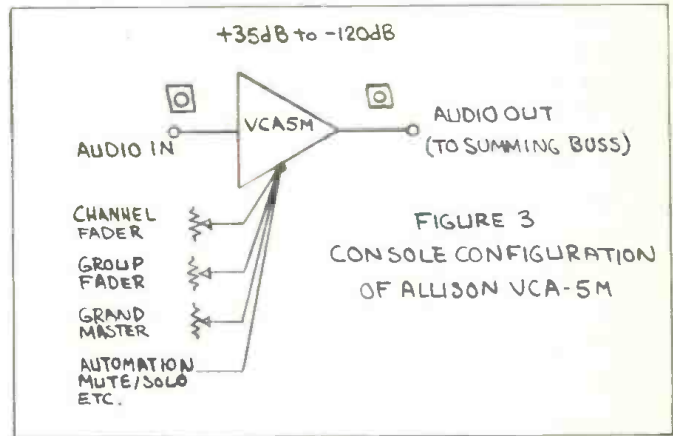 +35dB to -120dB
VCA5M
AUDIO IN
AUDIO OUT
(TO SUMMING BUSS)
CHANNEL
FADER
GROUP
FADER
GRAND
MASTER
AUTOMATION
MUTE/SOLO
ETC.
FIGURE 3
CONSOLE CONFIGURATION
OF ALLISON VCA-5M